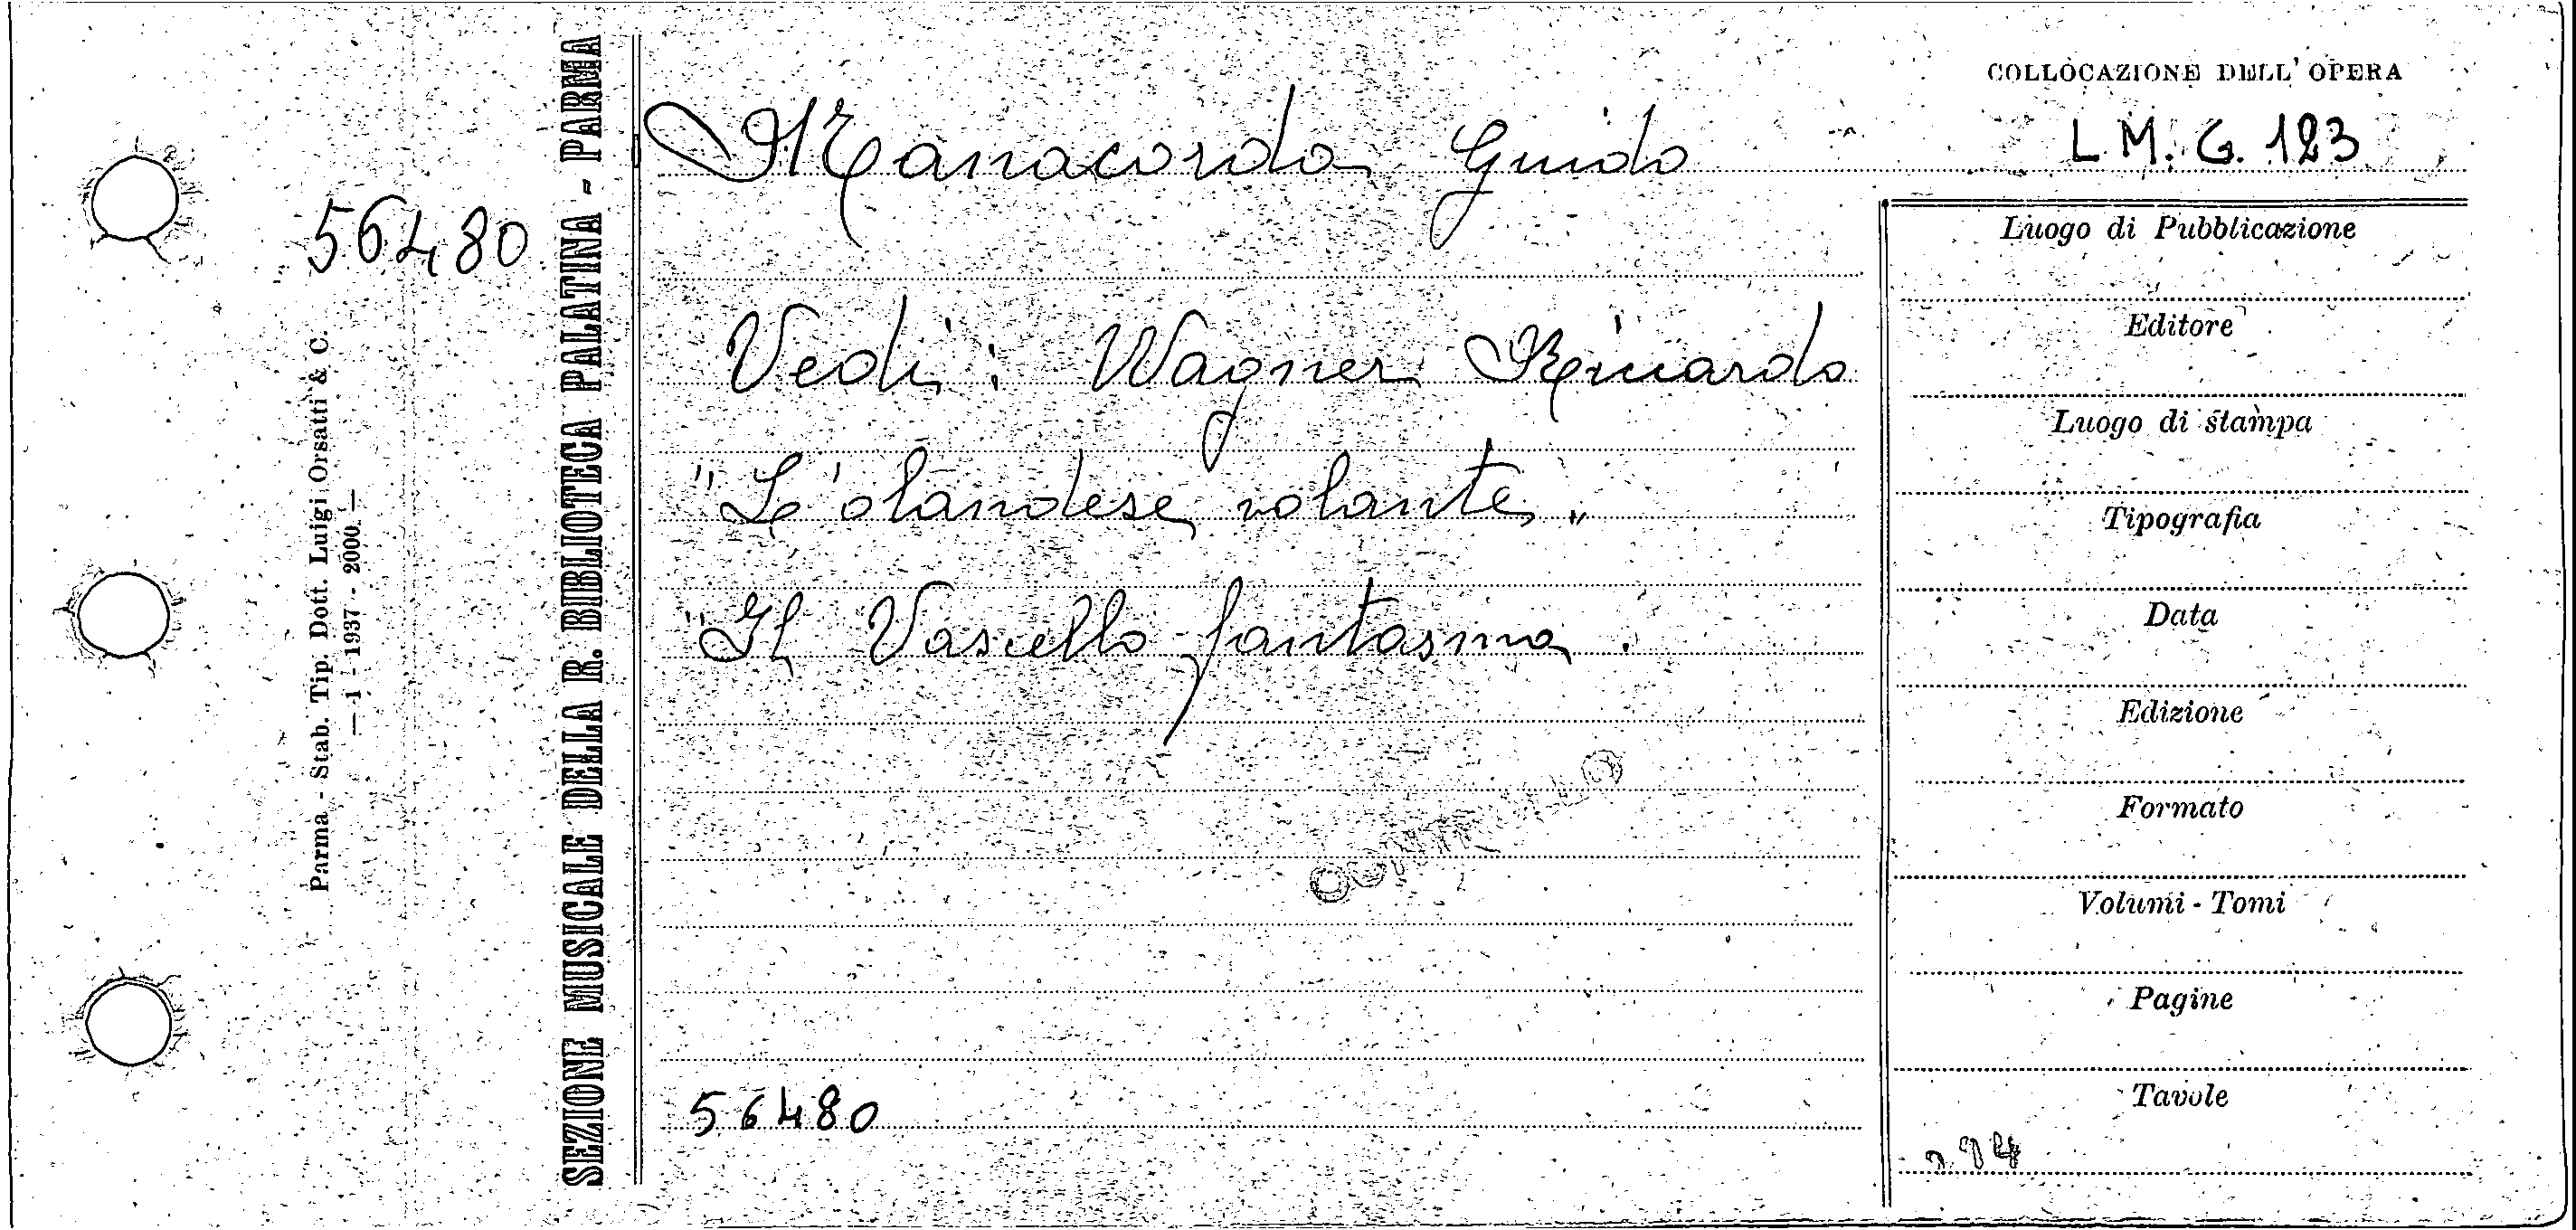 COLLOCAZIONE DELL' OPERA
L. M. G. 123
Manacorda Guido
56480
Vedi: Wagner Riccardo
"L'olandese volante"
"Il Vascello fantasma.
56480
SEZIONE MUSICALE DELLA R. BIBLIOTECA PALATINA - PARMA
Parma - Stab. Tip. Dott. Luigi Orsatti & C.
— 1 - 1937 - 2000 —
Luogo di Pubblicazione
Editore
Luogo di stampa
Tipografia
Data
Edizione
Formato
Volumi - Tomi
Pagine
Tavole